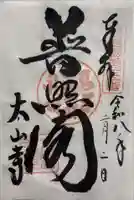 奉拝
令和八年
二月二日
普照閣
大山寺